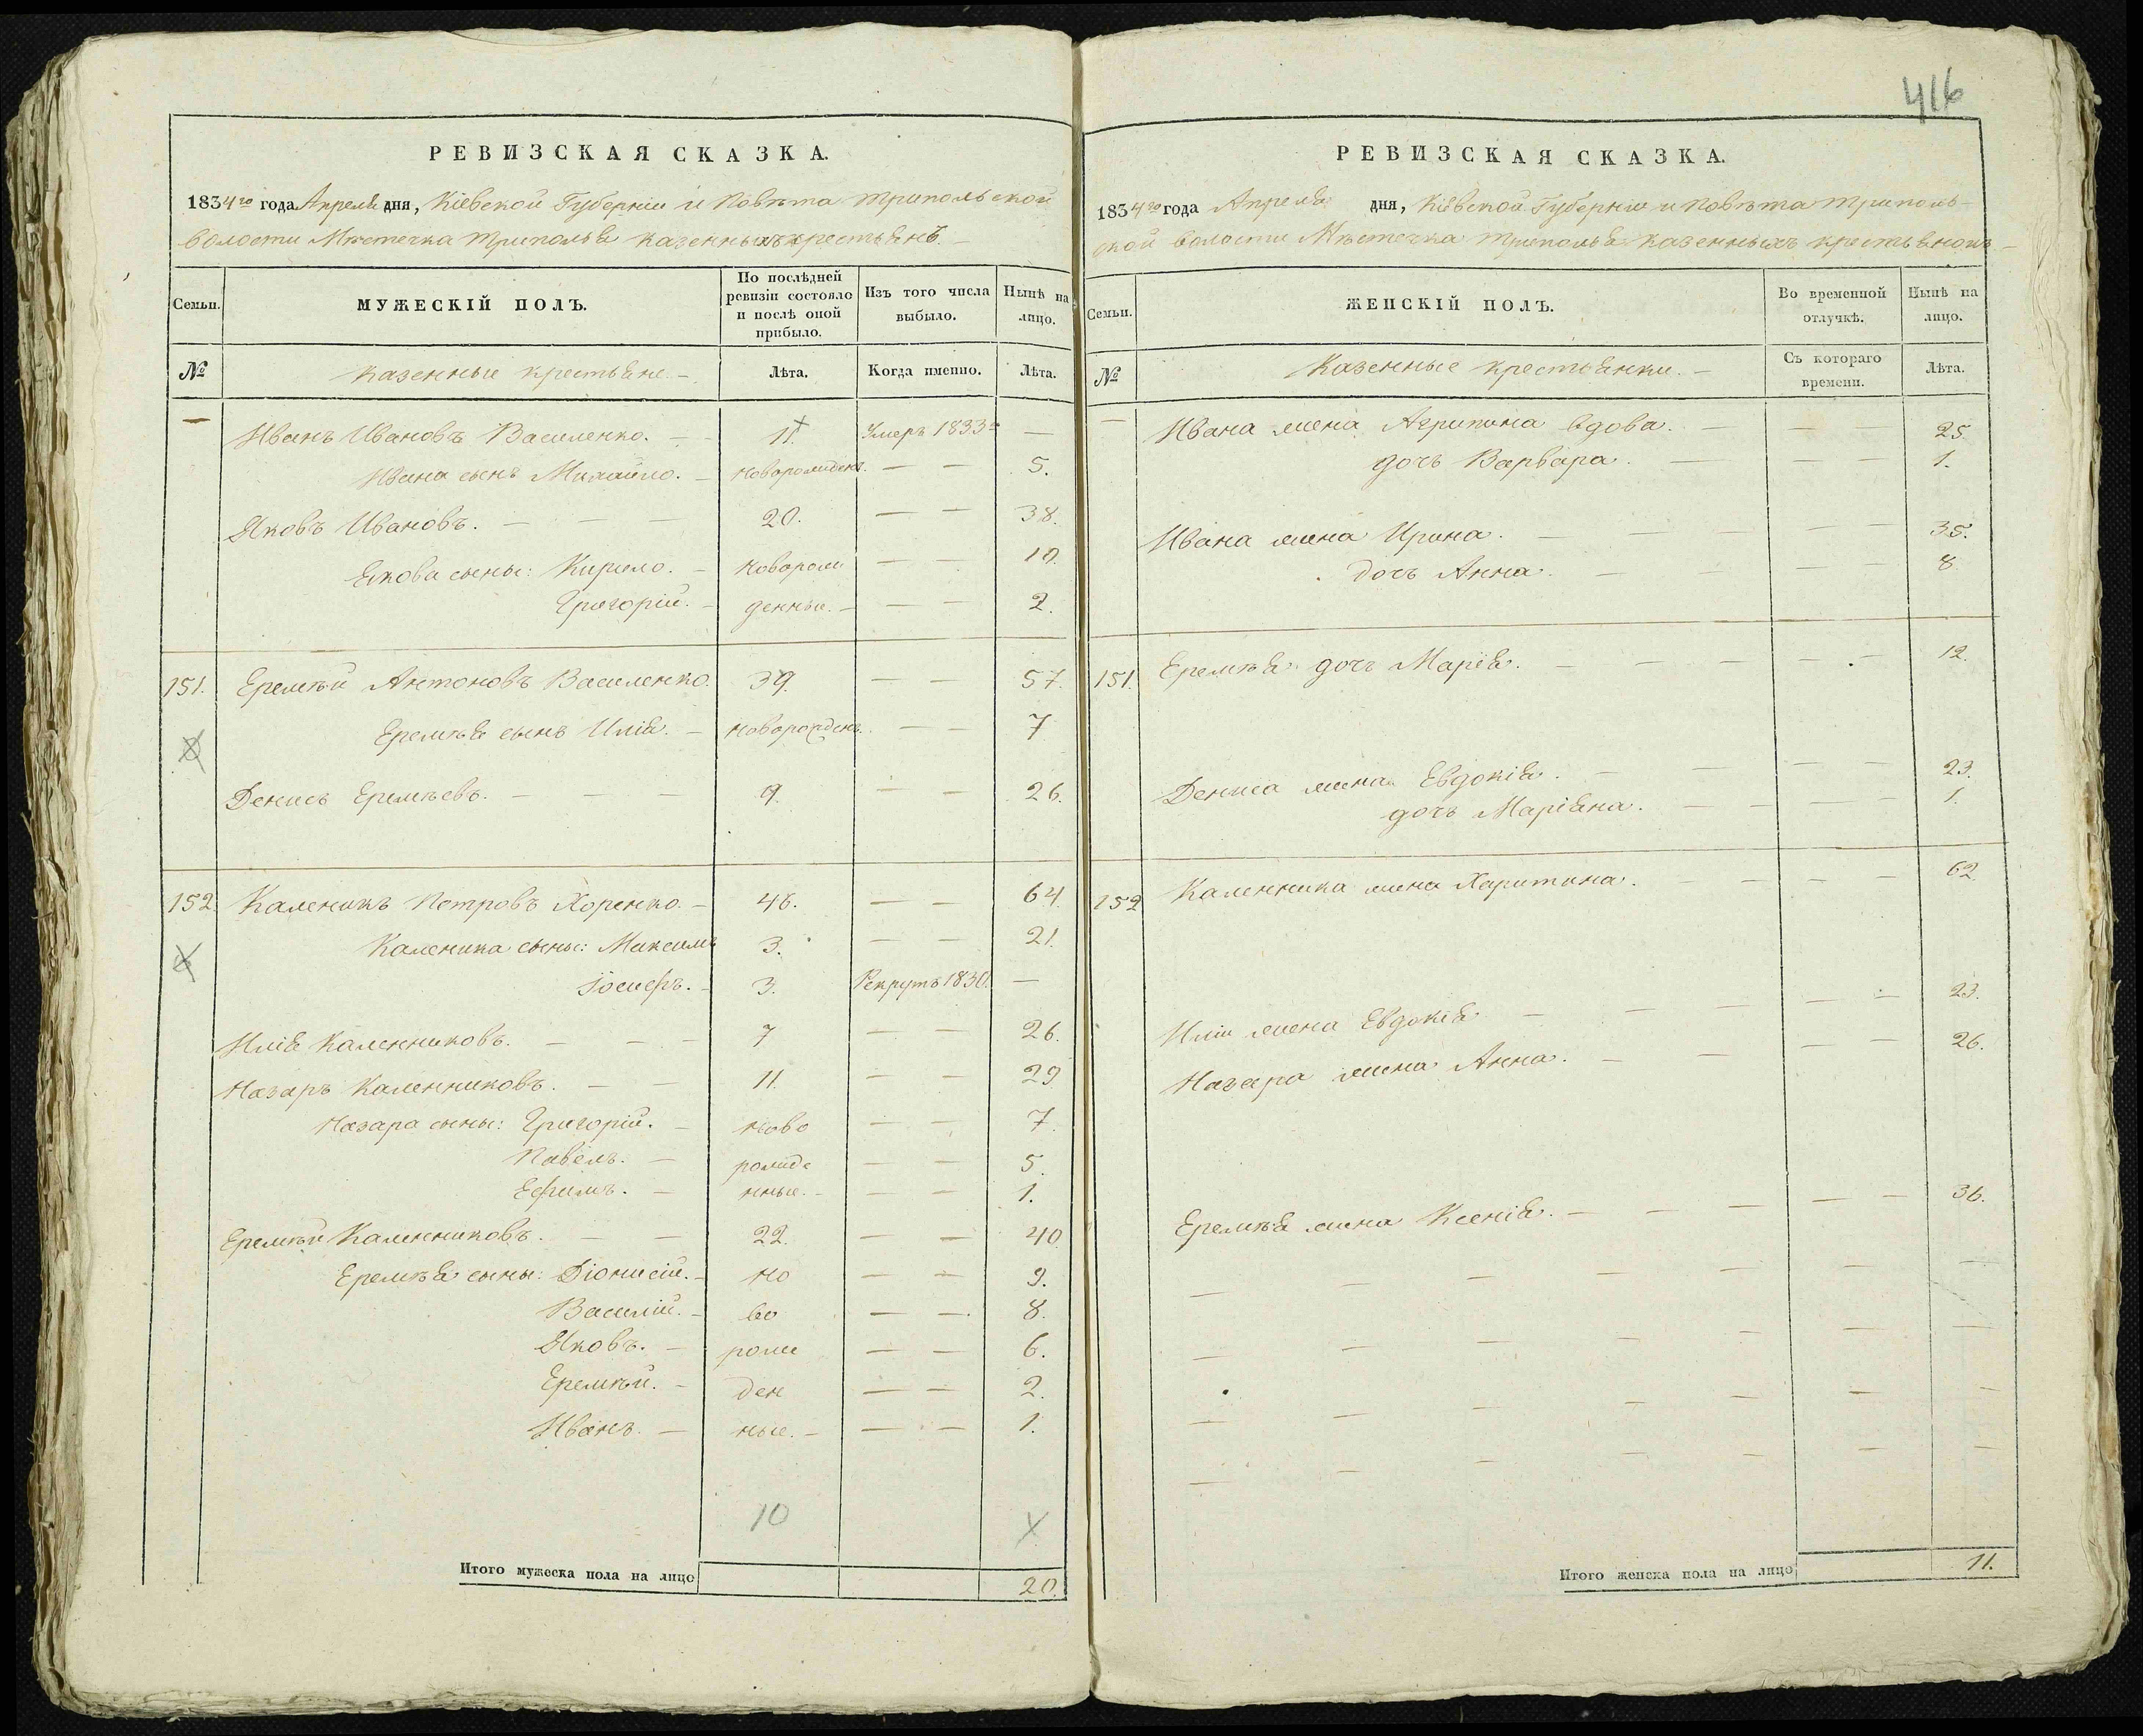 416
РЕВИЗСКАЯ СКАЗКА.
1834го года Апреля дня, Кіевской Губерніи и Повѣта Трипольской
волости Мѣстечка Триполья казенныхъ крестьянъ.
Семьи.
МУЖЕСКІЙ ПОЛЪ.
По послѣдней ревизіи состояло и послѣ оной прибыло.
Изъ того числа выбыло.
Нынѣ на лицо.
№
Казенные крестьяне. —
Лѣта.
Когда именно.
Лѣта.
— Иванъ Ивановъ Василенко. — 11. Умеръ 1833го —
Ивана сынъ Михайло. — новорожденъ. — — 5.
Яковъ Ивановъ. — — — 20. — — 38.
Якова сыны: Кирило. — новорож — — 10.
Григорій. — денные. — — — 2.
151. Еремѣй Антоновъ Василенко. 39. — — 57.
Еремѣя сынъ Илія. — новорожденъ. — — 7
Денисъ Еремѣевъ. — — — 9. — — 26.
152. Каленикъ Петровъ Хоренко. — 46. — — 64.
Каленика сыны: Максимъ 3. — — 21.
Іосифъ. — 3. Рекрутъ 1830. —
Илія Каленниковъ. — — — 7 — — 26.
Назаръ Каленниковъ. — — 11. — — 29
Назара сыны: Григорій. — ново — — 7.
Павелъ. — рожде — — 5.
Ефимъ. — нные. — — — 1.
Еремѣй Каленниковъ. — — 22. — — 40
Еремѣя сыны: Діонисій. — но — — 9.
Василій. — во — — 8.
Яковъ. — рож — — 6.
Еремѣй. — ден — — 2.
Иванъ. — ные. — — — 1.
10
Итого мужеска пола на лицо 20.
РЕВИЗСКАЯ СКАЗКА.
1834го года Апреля дня, Кіевской Губерніи и Повѣта Триполь-
ской волости Мѣстечка Триполья казенныхъ крестьянокъ —
Семьи.
ЖЕНСКІЙ ПОЛЪ.
Во временной отлучкѣ.
Нынѣ на лицо.
№
Казенные крестьянки. —
Съ котораго времени.
Лѣта.
— Ивана жена Агрипина вдова. — — — 25.
дочь Варвара. — — — 1.
Ивана жена Ирина. — — — — — 35.
дочь Анна. — — — — 8.
151. Еремѣя дочь Марія. — — — — — 12.
Дениса жена Евдокія. — — — — 23.
дочь Маріяна. — — — — 1.
152 Каленника жена Харитина. — — — — 62
Иліи жена Евдокія — — — — — 23.
Назара жена Анна. — — — — 26.
Еремѣя жена Ксенія. — — — — — 36.
Итого женска пола на лицо 11.